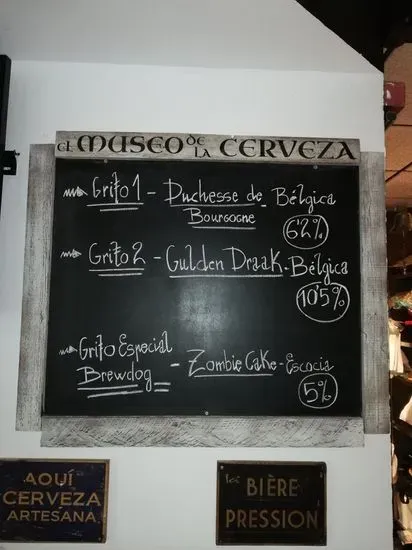 EL MUSEO DE LA CERVEZA
Grifo 1 - Duchesse de - Bélgica
Bourgogne
6'2%
Grifo 2 - Gulden Draak - Bélgica
10'5%
Grifo Especial
Brewdog - Zombie Cake - Escocia
5%
AQUÍ
CERVEZA
ARTESANA
BIÈRE
PRESSION